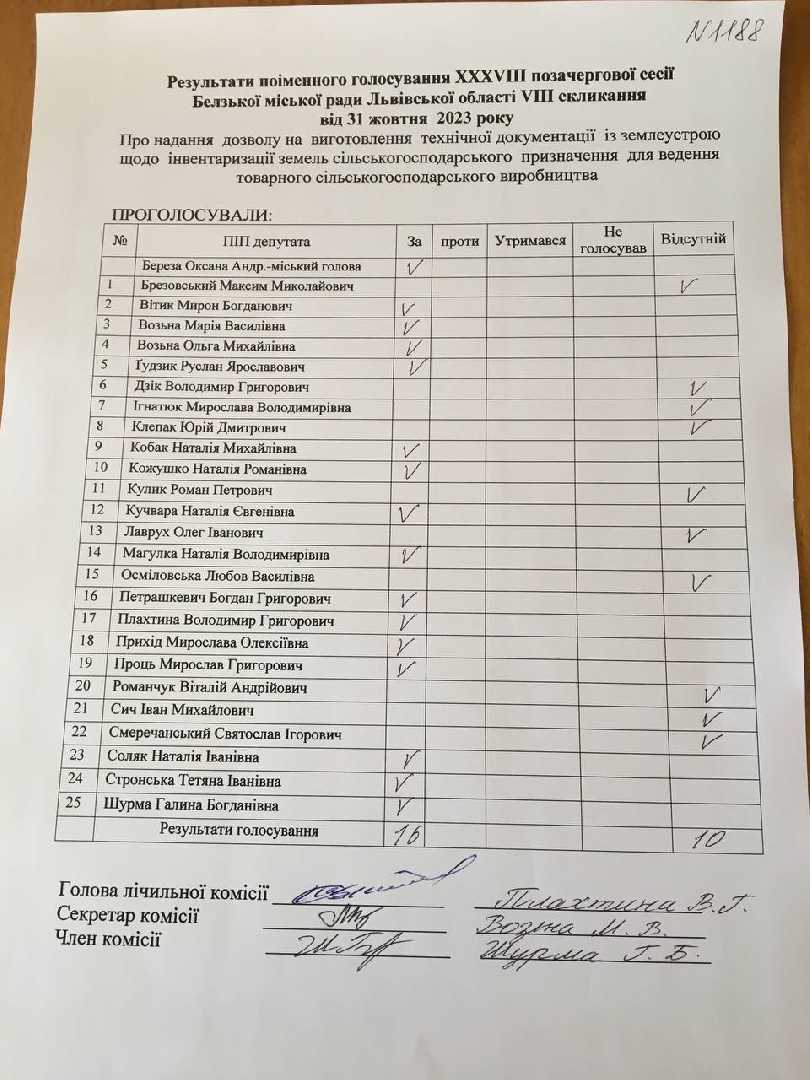 N1188
Результати поіменного голосування XXXVIII позачергової сесії
Белзької міської ради Львівської області VIII скликання
від 31 жовтня 2023 року
Про надання дозволу на виготовлення технічної документації із землеустрою
щодо інвентаризації земель сільськогосподарського призначення для ведення
товарного сільськогосподарського виробництва
ПРОГОЛОСУВАЛИ:
№ ПІП депутата За проти Утримався Не голосував Відсутній
Береза Оксана Андр.-міський голова V
1 Брезовський Максим Миколайович V
2 Вітик Мирон Богданович V
3 Возьна Марія Василівна V
4 Возьна Ольга Михайлівна V
5 Ґудзик Руслан Ярославович V
6 Дзік Володимир Григорович V
7 Ігнатюк Мирослава Володимирівна V
8 Клепак Юрій Дмитрович V
9 Кобак Наталія Михайлівна V
10 Кожушко Наталія Романівна V
11 Кулик Роман Петрович V
12 Кучвара Наталія Євгенівна V
13 Лаврух Олег Іванович V
14 Магулка Наталія Володимирівна V
15 Осміловська Любов Василівна V
16 Петрашкевич Богдан Григорович V
17 Плахтина Володимир Григорович V
18 Прихід Мирослава Олексіївна V
19 Проць Мирослав Григорович V
20 Романчук Віталій Андрійович V
21 Сич Іван Михайлович V
22 Смеречанський Святослав Ігорович V
23 Соляк Наталія Іванівна V
24 Стронська Тетяна Іванівна V
25 Шурма Галина Богданівна V
Результати голосування 16 10
Голова лічильної комісії Плахтина В.Г.
Секретар комісії Возна М. В.
Член комісії Шурма Г. Б.